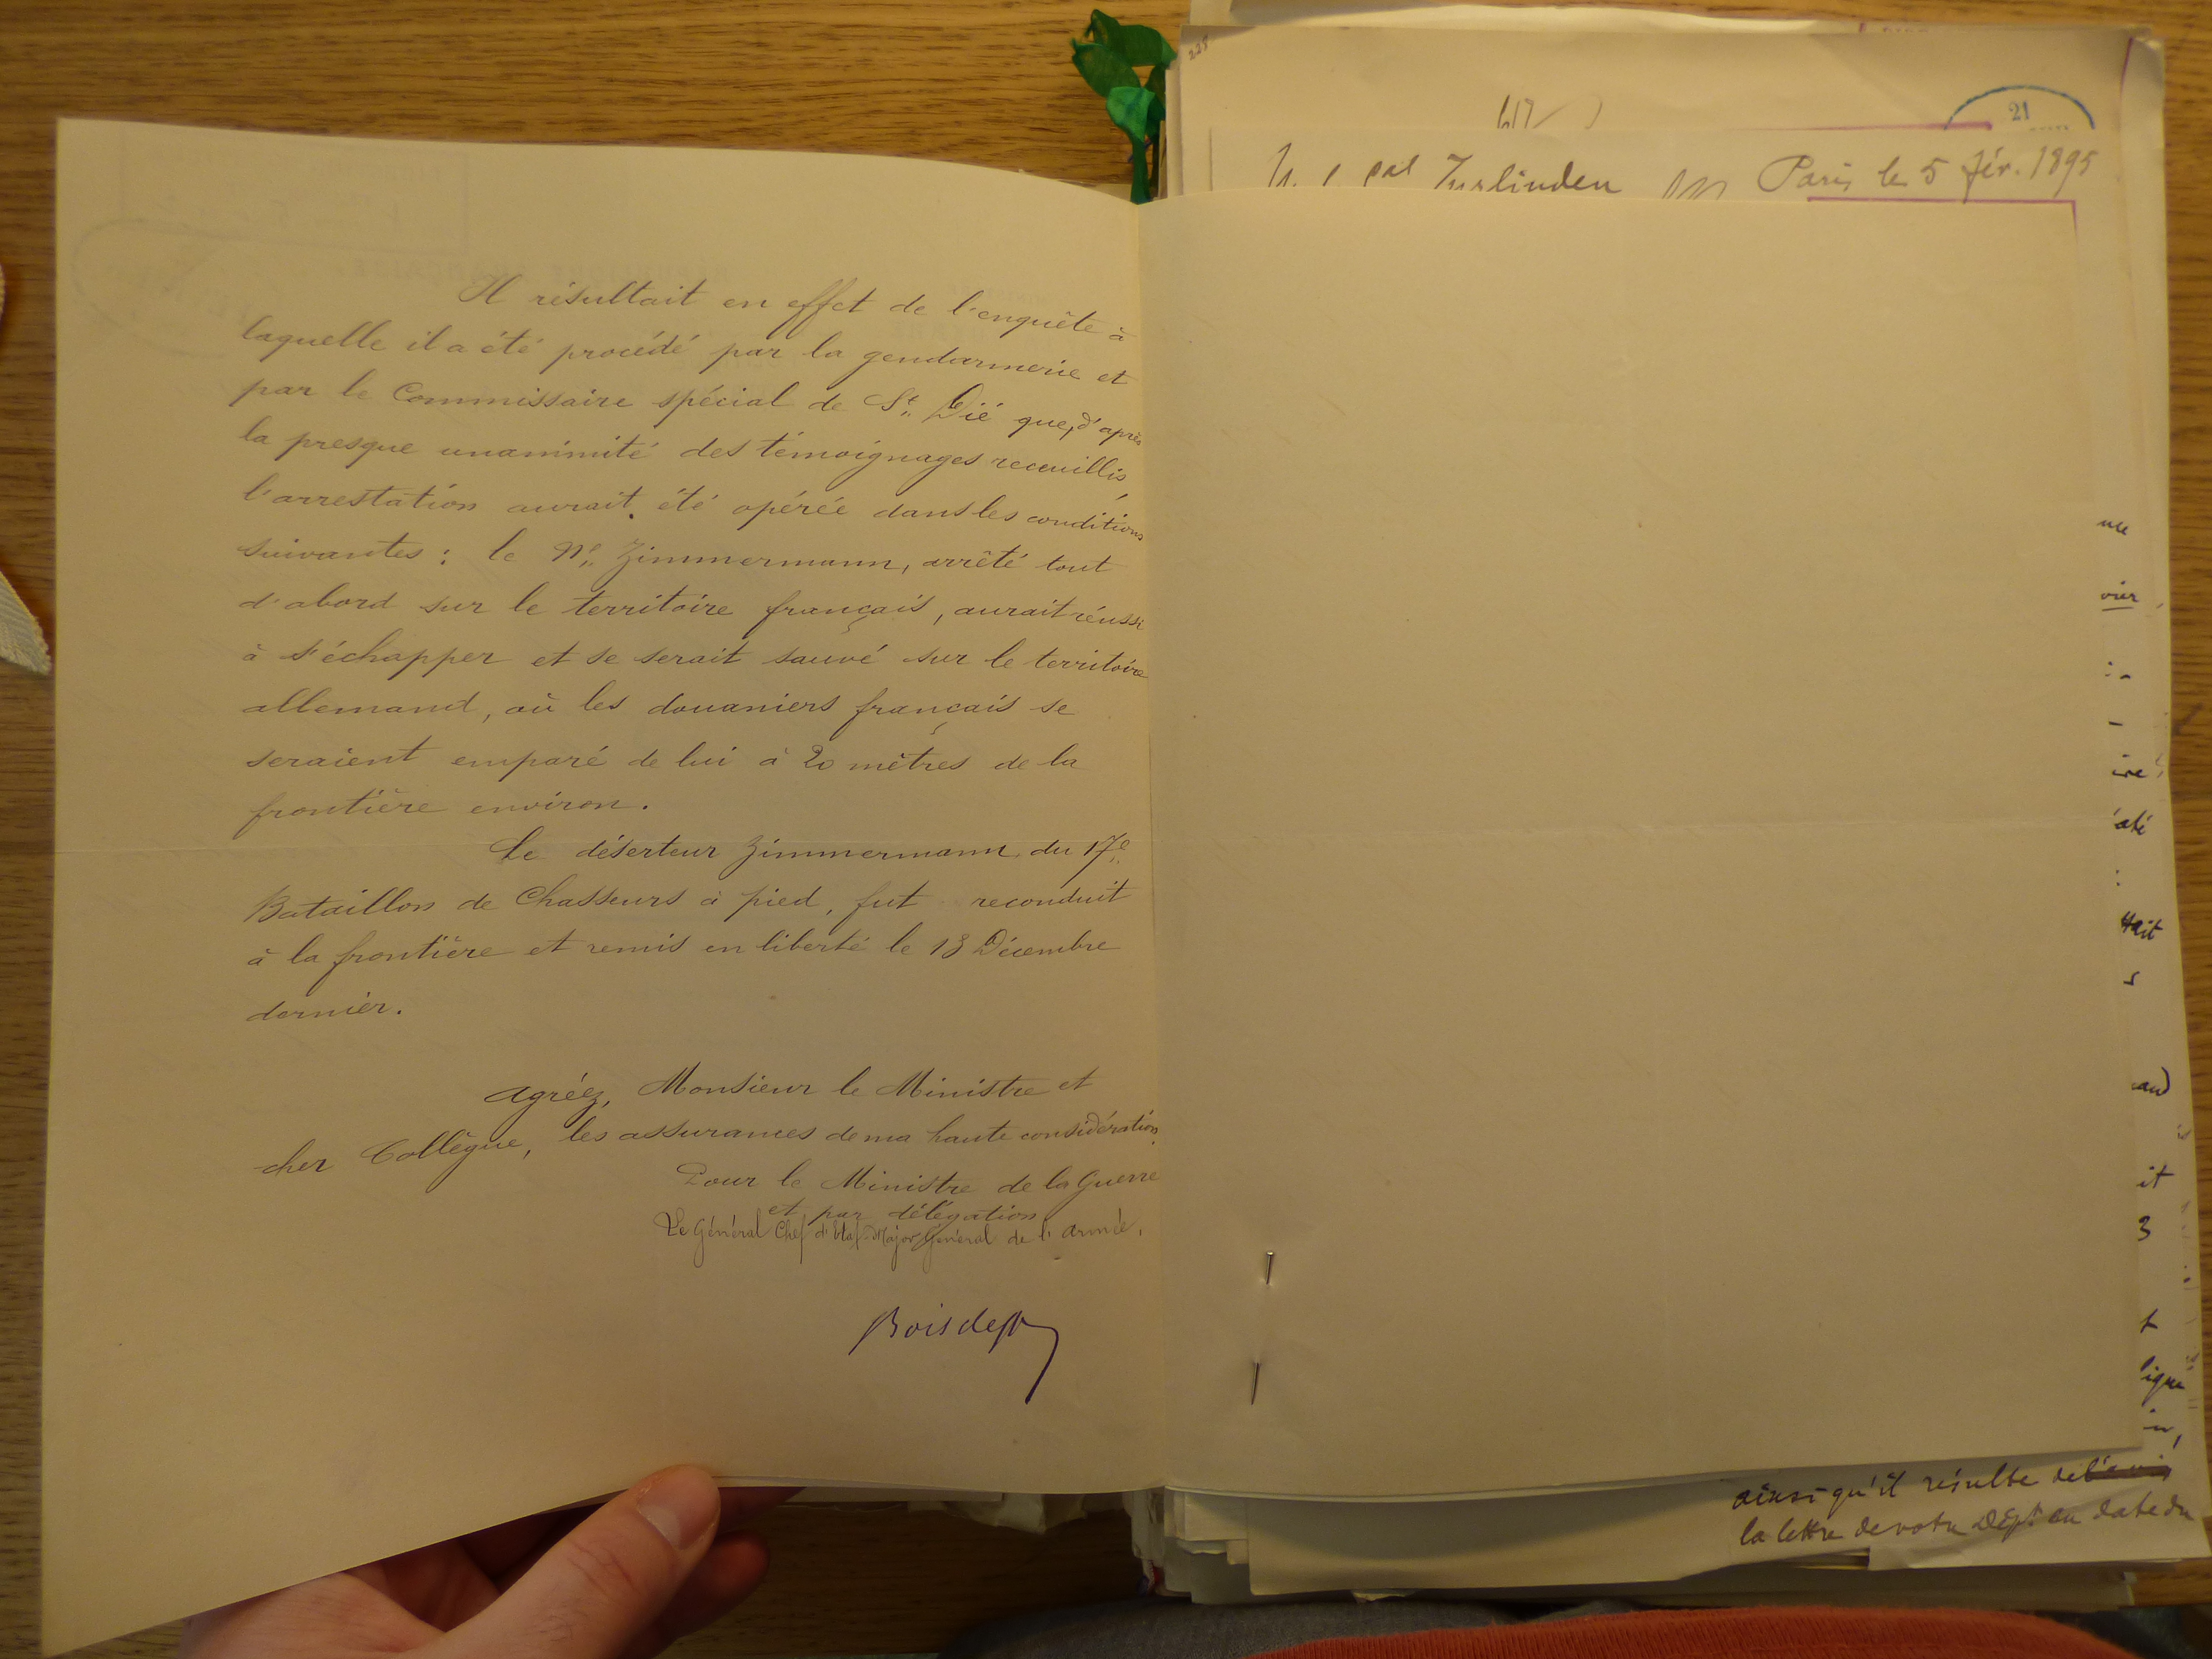 Il résultait en effet de l'enquête à
laquelle il a été procédé par la gendarmerie et
par le Commissaire spécial de St. Dié que, d'après
la presque unanimité des témoignages receuillis,
l'arrestation aurait été opérée dans les conditions
suivantes : le Né Zimmermann, arrêté tout
d'abord sur le territoire français, aurait réussi
à s'échapper et se serait sauvé sur le territoire
allemand, où les douaniers français se
seraient emparé de lui à 20 mètres de la
frontière environ.
Le déserteur Zimmermann du 17e
Bataillon de Chasseurs à pied, fut reconduit
à la frontière et remis en liberté le 13 Décembre
dernier.
Agréez, Monsieur le Ministre et
cher Collègue, les assurances de ma haute considération.
Pour le Ministre de la Guerre
et par délégation
Le Général Chef d'Etat-Major Général de l'armée.
Boisdeffre
21
Zurlinden Paris le 5 fév. 1895
ainsi qu'il résulte de
la lettre de votre Dépt en date du